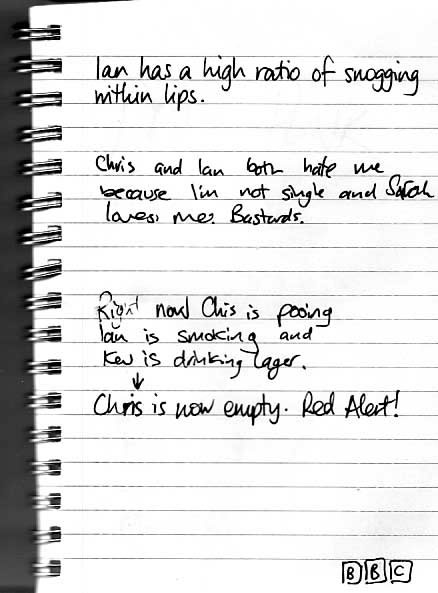 Ian has a high ratio of snogging
within lips.
Chris and Ian both hate me
because I'm not single and Sarah
loves me. Bastards.
Right now Chis is pooing
Ian is smoking and
Kev is drinking lager.
↓
Chris is now empty. Red Alert!
B B C